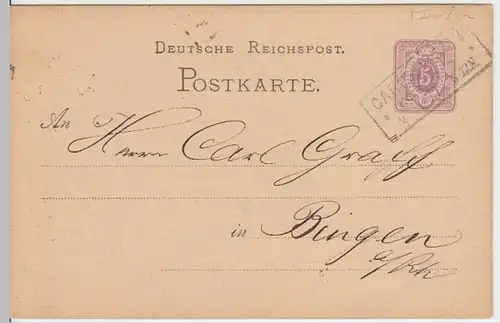 DEUTSCHE REICHSPOST.
POSTKARTE.
5
An
Herrn Carl Graff
in Bingen
a/Rh